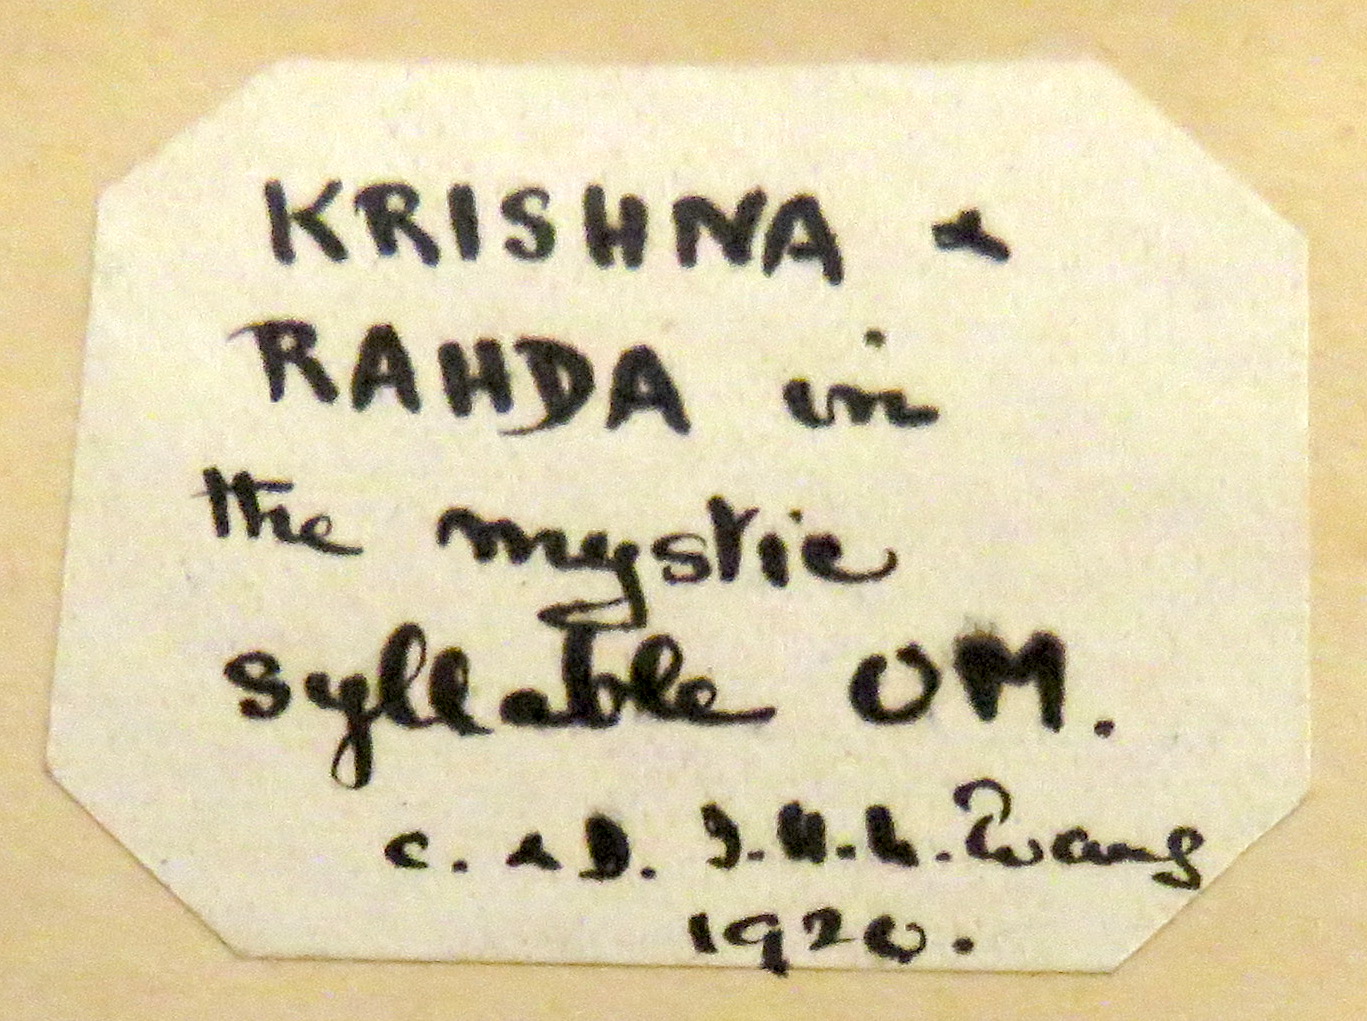 KRISHNA &
RAHDA in
the mystic
syllable OM.
C. & D. J.H.L.
1920.